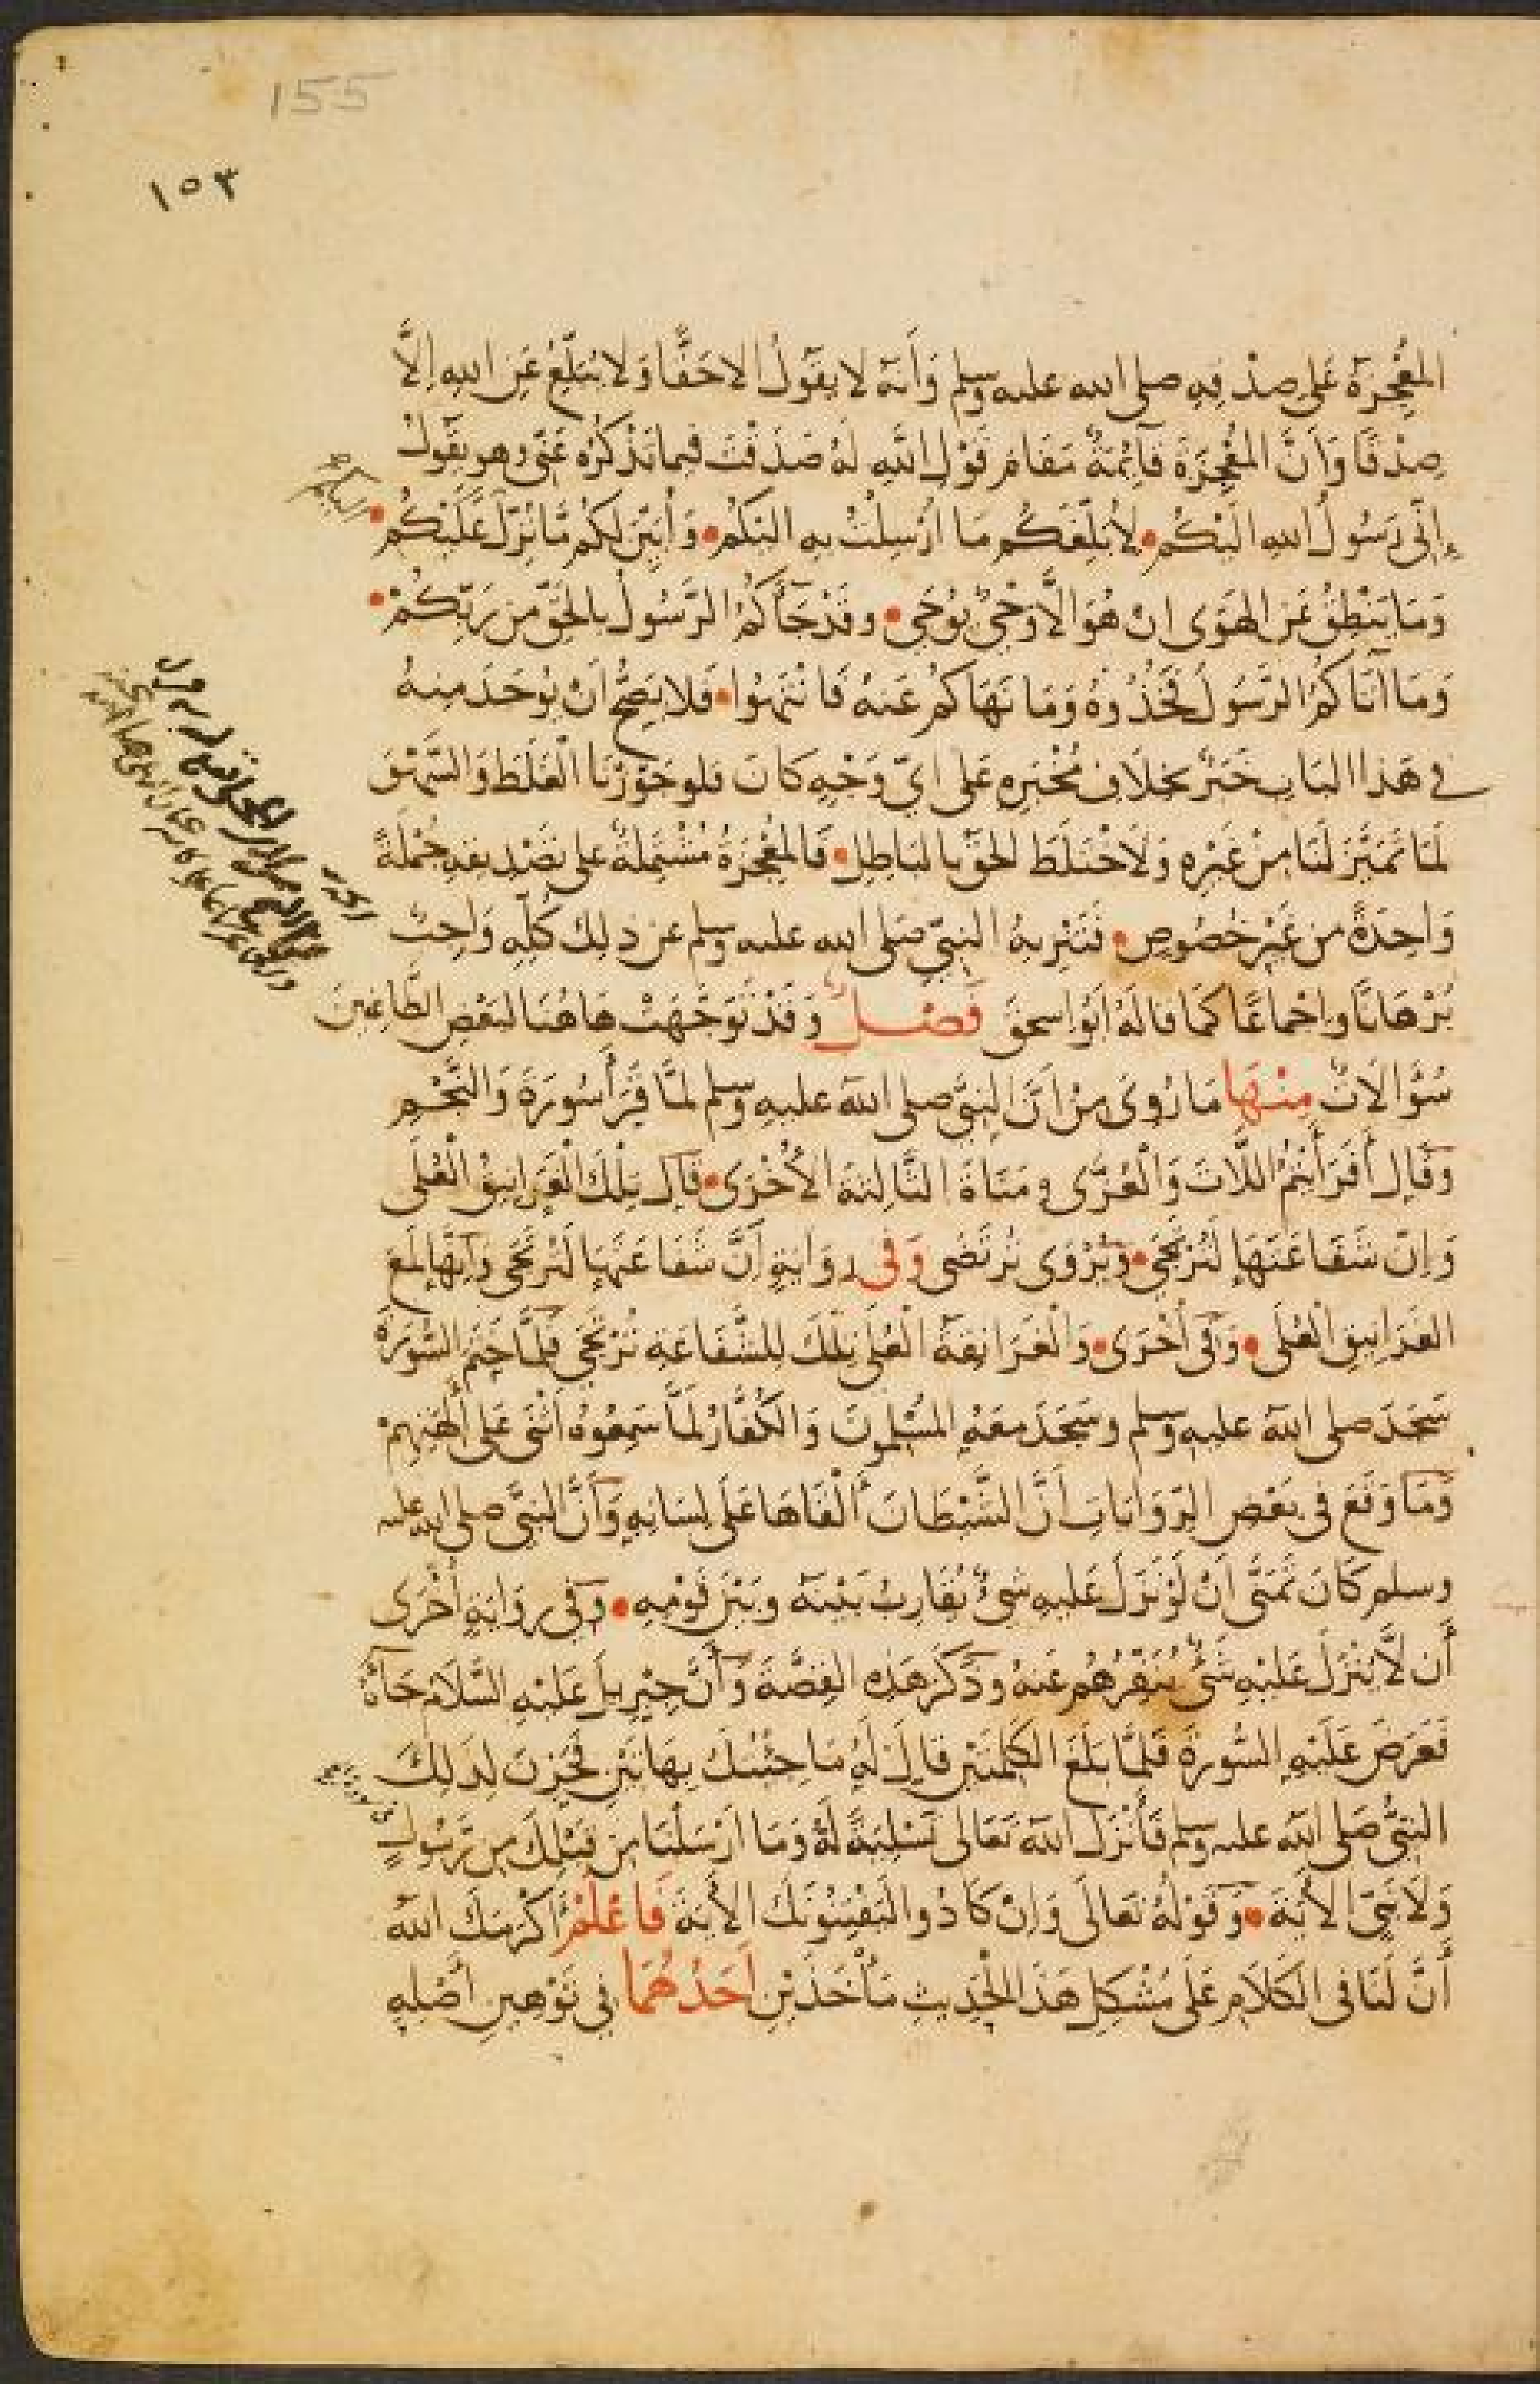 155
١٥٣
المُعْجِزَةُ عَلى صِدْقِهِ صلى الله عليه وسلم وَأَنَّهُ لا يَقُولُ الا حَقًّا وَلا يُبَلِّغُ عَنِ اللهِ اِلَّا
صِدْقًا وَاَنَّ المُعْجِزَةَ قَآئِمَةٌ مَقَامَ قَوْلِ اللهِ لَهُ صَدَقْتَ فيما تَذْكُرُه عَنّى وهو يَقُولُ
إنّى رَسُولُ اللهِ الَيْكُم لِأُبَلِّغَكُم مَا أُرْسِلْتُ به اليْكُمْ وَأُبَيِّنَ لكُم مَّا نُزِّلَ عَلَيْكُمْ
وَمَا يَنْطِقُ عَنِ الهَوَى انْ هُوَ الَّا وَحْىٌ يُوحَى وقَدْ جَآءَكُمُ الرَّسُولُ بالحَقِّ من رَبِّكُمْ
وَمَا آتَاكُمُ الرَّسُولُ فَخُذُوهُ وَمَا نَهَاكُمْ عَنهُ فَانْتَهُوا فَلا يَصِحُّ اَنْ يُوجَدَ مِنهُ
فى هَذا البَابِ خَبَرٌ بخِلَافِ مُخْبَرِهِ عَلى اىّ وَجْهٍ كانَ فلو جَوَّزْنَا الْغَلَطَ وَالسَّهْوَ
لَمَا تَمَيَّزَ لَنَا مِنْ غَيْرِهِ وَلَاخْتَلَطَ الحَقُّ بالبَاطِلِ فَالمُعْجِزَةُ مُشْتَمِلَةٌ على تَصْدِيقِهِ جُمْلَةً
وَاحِدَةً من غَيْرِ خُصُوصٍ فَتَنْزِيهُ النبىِّ صَلى الله عليه وسلم عن ذلِكَ كُلِّهِ وَاجِبٌ
بُرْهَانًا واِجْماعًا كمَا قالَهُ اَبُو اسحقَ فَصْلٌ وَقَدْ تَوَجَّهَتْ هَاهُنَا لبَعْضِ الطَّاعِنينَ
سُؤَالَاتٌ مِنْهَا مَا رُوِىَ مِنْ اَنَّ النبىَّ صلى الله عليه وسلم لمَّا قَرَأَ سُورَةَ وَالنَّجْمِ
وَقَالَ أَفَرَأَيْتُمُ اللَّاتَ وَالْعُزَّى وَمَنَاةَ الثَّالِثَةَ الأُخْرَى قالَ تِلْكَ الْغَرَانِيقُ الْعُلَى
وَاِنَّ شَفَاعَتَهَا لَتُرْتَجَى وَيُرْوَى تُرْتَضَى وَفى رِوَايَةٍ اَنَّ شَفَاعَتَهَا لَتُرْتَجَى وَاِنَّهَا لَمَعَ
الغَرَانِيقِ الْعُلَى وَفى أُخْرَى وَالْغَرَانِقَةُ الْعُلَى تِلْكَ لِلشَّفَاعَةِ تُرْتَجَى فلَمَّا خَتَمَ السُّورَةَ
سَجَدَ صلى الله عليه وسلم وسَجَدَ معَهُ المُسْلِمونَ وَالكُفَّارُ لَمَّا سَمِعُوهُ اَثْنَى عَلى أٓلِهَتِهِمْ
وَمَا وَقَعَ فى بَعْضِ الرِّوَايَاتِ أَنَّ الشَّيْطَانَ أَلْقَاهَا عَلَى لِسَانِهِ وَأَنَّ النبىَّ صلى الله عليه
وسلم كَانَ تَمَنَّى اَنْ لَوْ نَزَلَ عَلَيهِ شىْءٌ يُقَارِبُ بَيْنَهُ وبَيْنَ قَوْمِهِ وفى رِوَايَةٍ أُخْرَى
أَن لَّا يَنْزِلَ عَلَيْهِ شَىْءٌ يُنَفِّرُهُم عَنهُ وذَكَرَ هَذِهِ القِصَّةَ وَأَنَّ جِبْرِيلَ عَلَيْهِ السَّلَامُ جَآءَهُ
فَعَرَضَ عَلَيْهِ السُّورَةَ فَلمَّا بَلَغَ الكَلِمَتَيْنِ قالَ لَهُ مَا جِئْتُكَ بِهَاتَيْنِ فَحَزِنَ لِذَلِكَ
النبىُّ صَلى الله عليه وسلم فَأَنْزَلَ اللهُ تَعَالى تَسْلِيَةً لَهُ وَمَا اَرْسَلْنَا مِنْ قَبْلِكَ مِن رَّسُولٍ
وَلَا نَبِىّ الأيَةَ وَقَوْلُهُ تَعَالَى وَاِنْ كَادُوا لَيَفْتِنُونَكَ الأيَةَ فَاعْلَمْ أَكْرَمَكَ اللهُ
أَنَّ لَنَا فى الكَلَامِ عَلَى مُشْكِلِ هَذَا الْحَدِيثِ مَأْخَذَيْنِ أَحَدُهُمَا فى تَوْهِينِ أَصْلِهِ